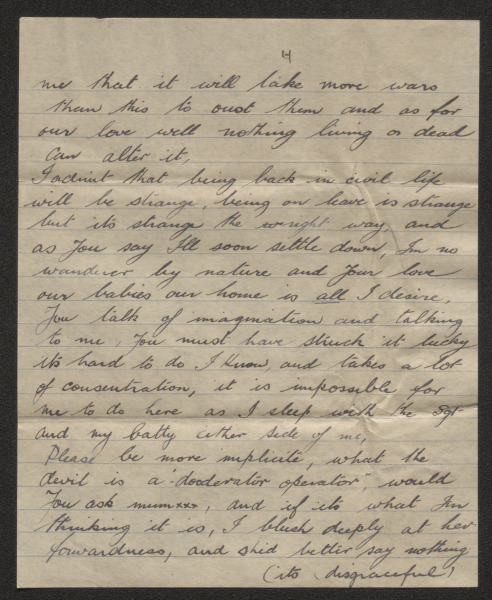 4
me that it will take more wars
than this to oust them and as for
our love well nothing living or dead
can alter it,
I admit that being back in civil life
will be strange, being on leave is strange
but its strange the right way, and
as you say I'll soon settle down, I'm no
wanderer by nature and your love
our babies our home is all I desire,
You talk of imagination and talking
to me, you must have struck it lucky
its hard to do I know, and takes a lot
of consentration, it is impossible for
me to do here as I sleep with the Sgt
and my batty either side of me,
Please be more implicite, what the
devil is a "dooderator operator" would
You ask mumxxx, and if its what I'm
thinking it is, I blush deeply at her
forwardness, and she'd better say nothing
(its disgraceful)